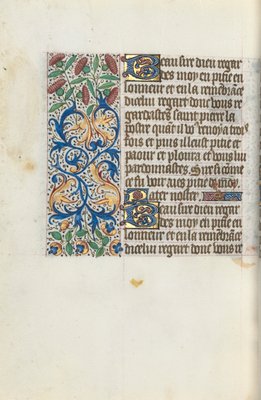 Beau sire dieu regar
des moy en pitie en
lonneur et en la remebrace
dicelui regart dont vous re
gardastes saint pierre la
nostre quat il vo9 renoya trois
fois et puis il eust pitie et
paour et ploura et vous lui
pardonnastres. Sire si come
ce fu voir aies pitie de moy.
Pater noster.
Beau sire dieu regar
des moy en pitie en
lonneur et en la remebrace
dicelui regart dont vous re